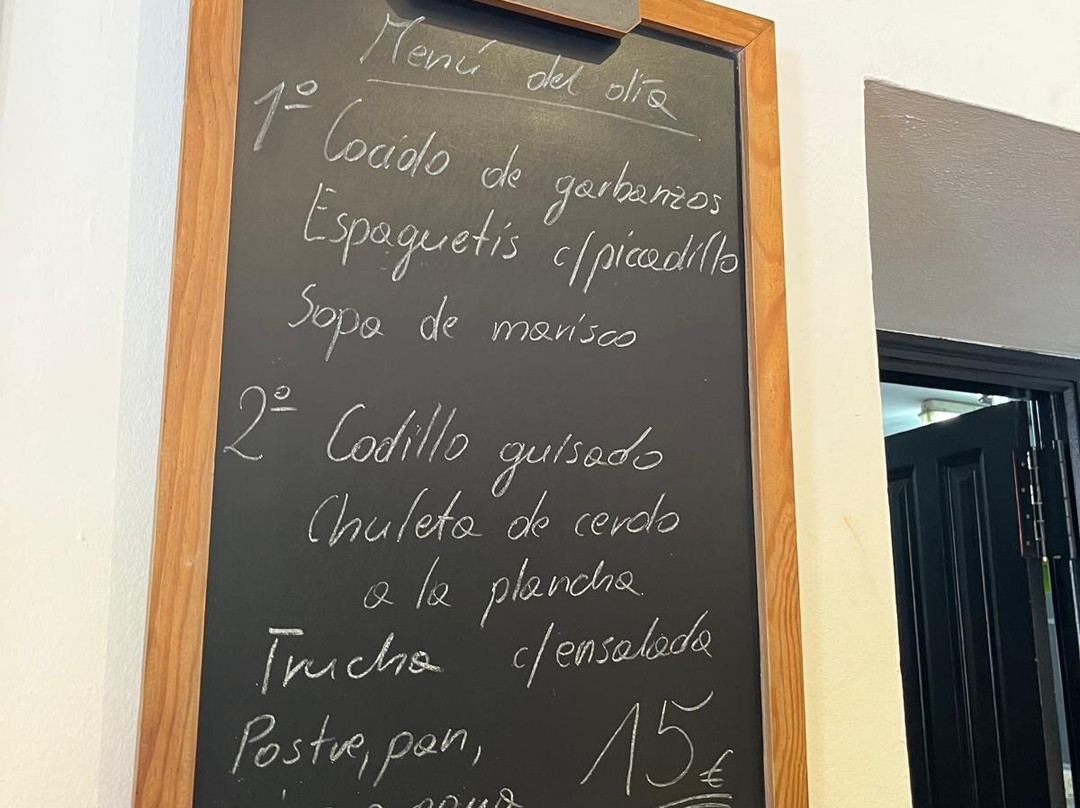 Menú del día
1º Cocido de garbanzos
Espaguetis c/picadillo
Sopa de marisco
2º Codillo guisado
Chuleta de cerdo
a la plancha
Trucha c/ensalada
Postre, pan,
15€
agua